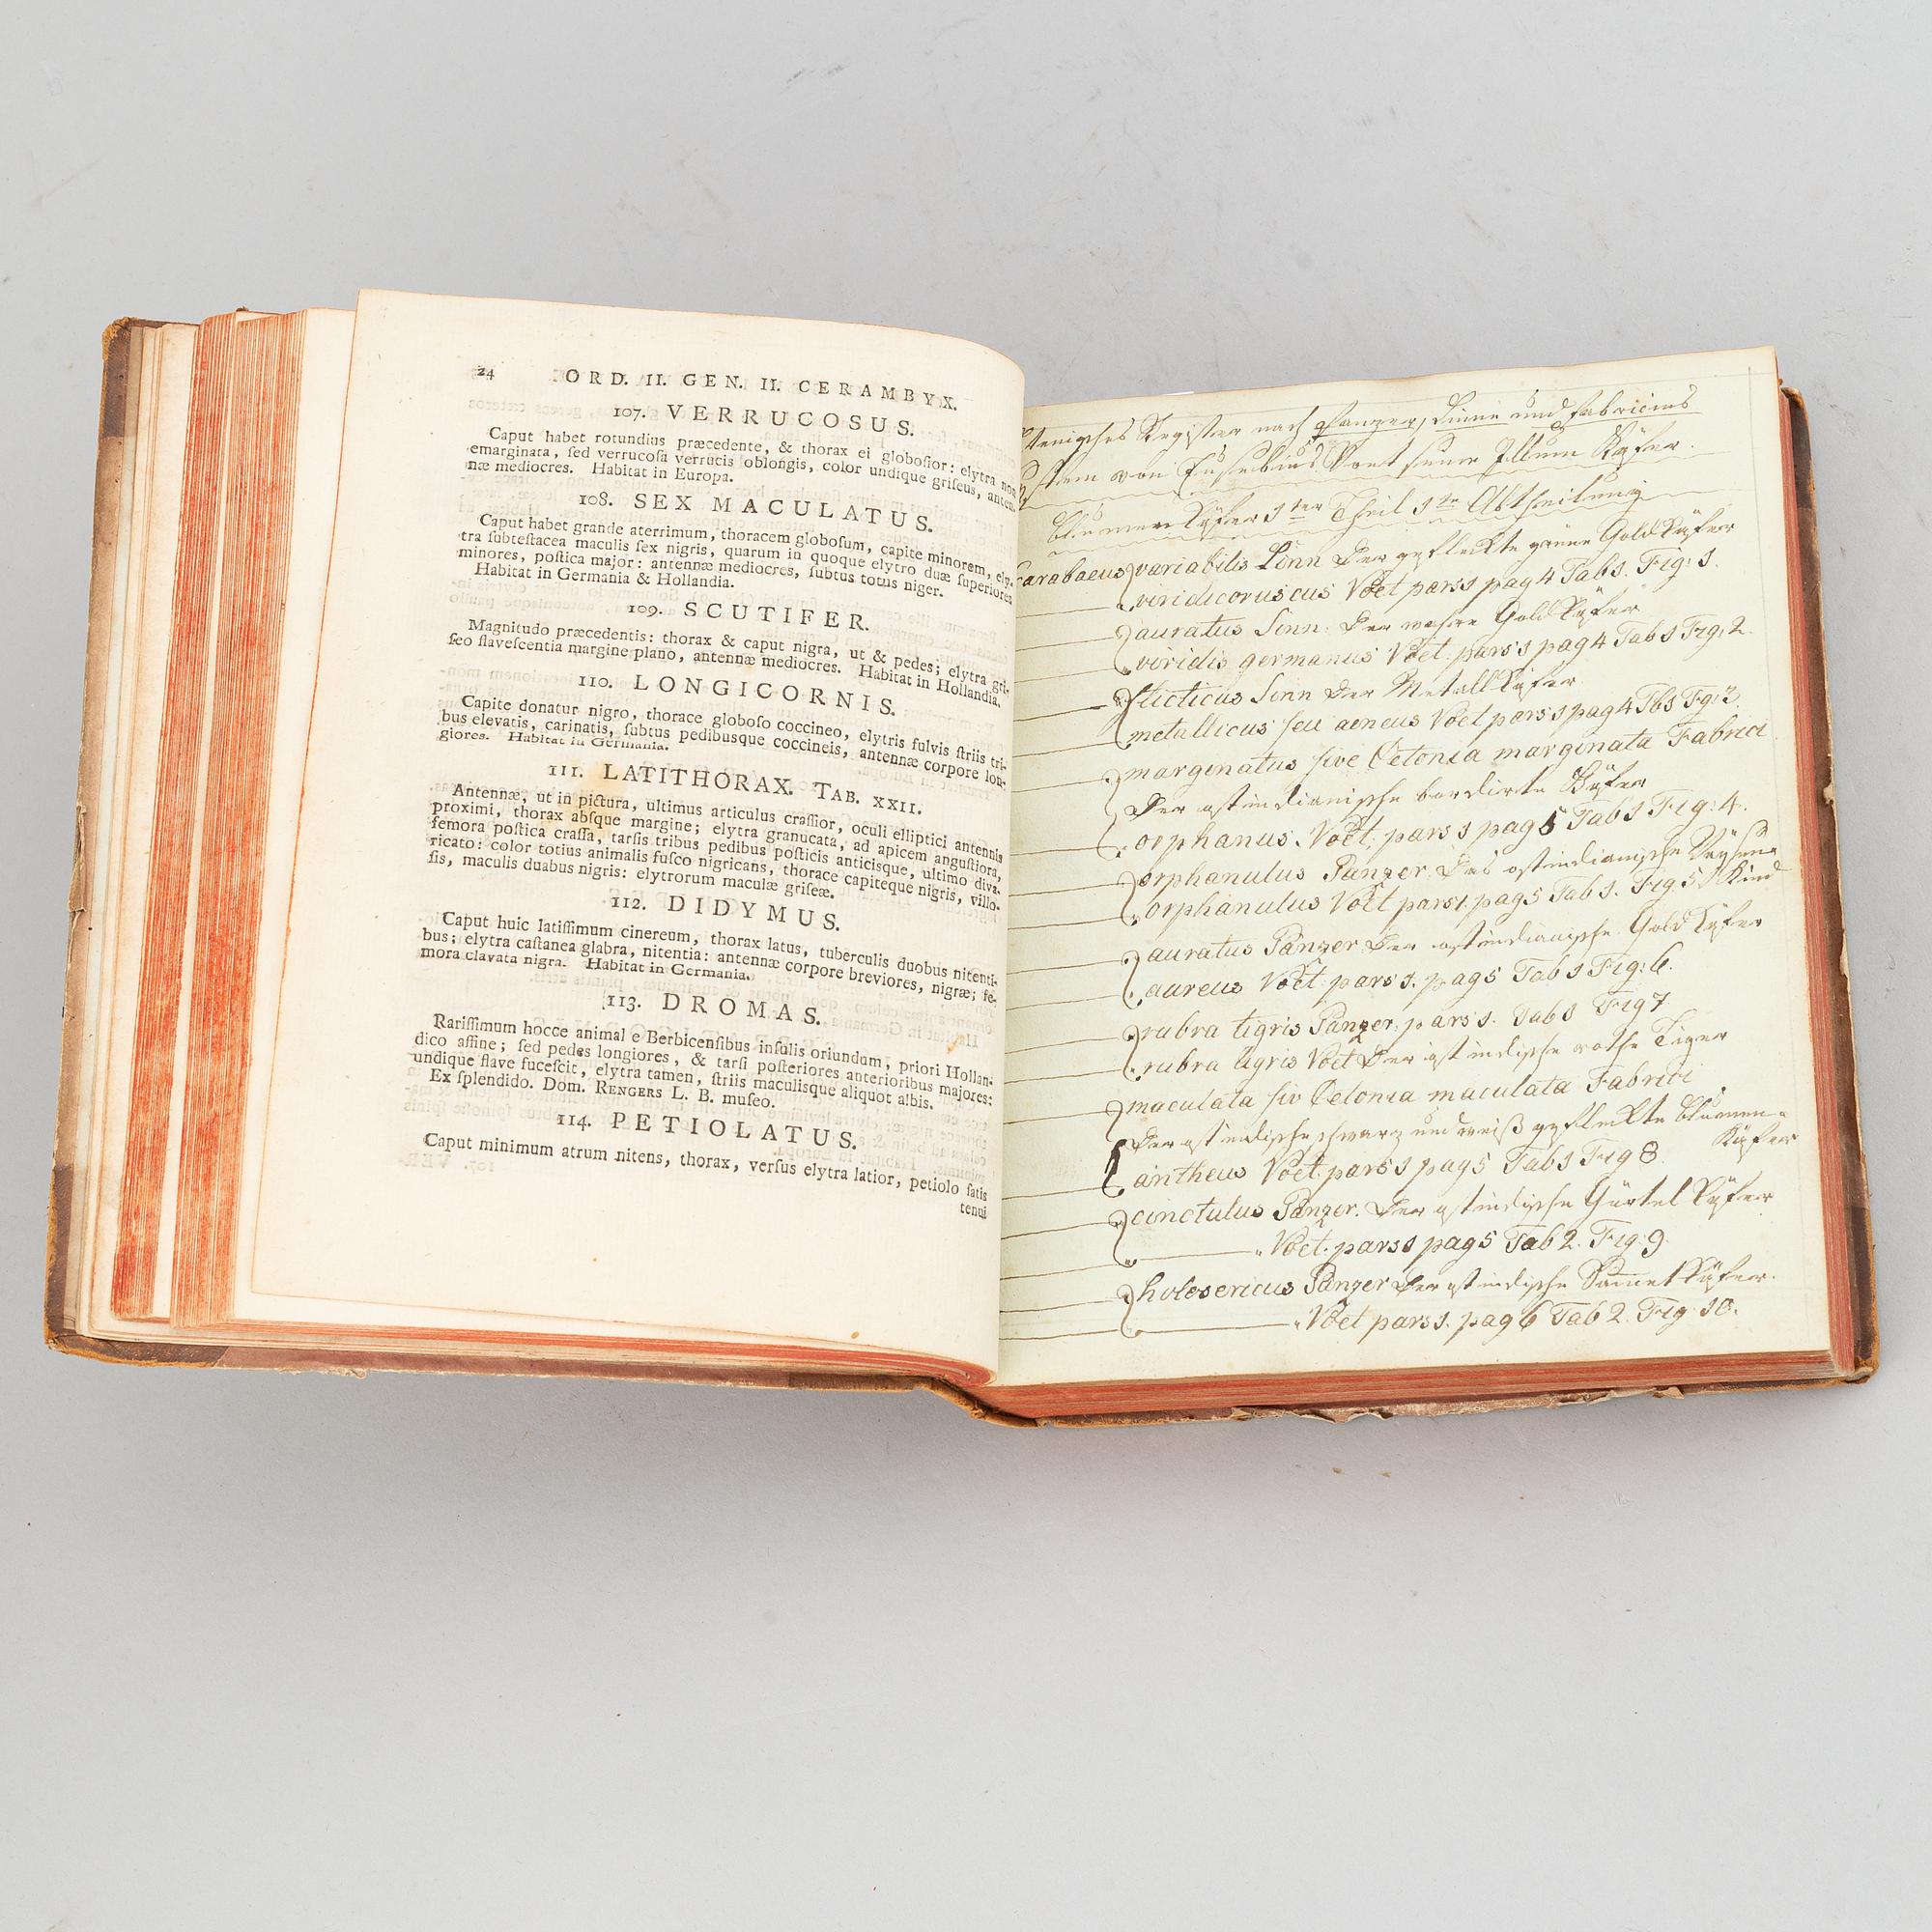 24 ORD. II. GEN. II. CERAMBYX.
107. VERRUCOSUS.
Caput habet rotundius præcedente, & thorax ei globoſior: elytra non
emarginata, ſed verrucoſa verrucis oblongis, color undique griſeus, anten-
næ mediocres. Habitat in Europa.
108. SEX MACULATUS.
Caput habet grande aterrimum, thoracem globoſum, capite minorem, ely-
tra ſubteſtacea maculis ſex nigris, quarum in quoque elytro duæ ſuperiores
minores, poſtica major: antennæ mediocres, ſubtus totus niger.
Habitat in Germania & Hollandia.
109. SCUTIFER.
Magnitudo præcedentis: thorax & caput nigra, ut & pedes; elytra gri-
ſeo flaveſcentia margine plano, antennæ mediocres. Habitat in Hollandia.
110. LONGICORNIS.
Capite donatur nigro, thorace globoſo coccineo, elytris fulvis ſtriis tri-
bus elevatis, carinatis, ſubtus pedibusque coccineis, antennæ corpore lon-
giores. Habitat in Germania.
111. LATITHORAX. TAB. XXII.
Antennæ, ut in pictura, ultimus articulus craſſior, oculi elliptici antennis
proximi, thorax absque margine; elytra granucata, ad apicem anguſtiora,
femora poſtica craſſa, tarſis tribus pedibus poſticis anticisque, ultimo diva-
ricato: color totius animalis fuſco nigricans, thorace capiteque nigris, villo-
ſis, maculis duabus nigris: elytrorum maculæ griſeæ.
112. DIDYMUS.
Caput huic latiſſimum cinereum, thorax latus, tuberculis duobus nitenti-
bus; elytra caſtanea glabra, nitentia: antennæ corpore breviores, nigræ; fe-
mora clavata nigra. Habitat in Germania.
113. DROMAS.
Rariſſimum hocce animal e Berbicenſibus inſulis oriundum, priori Hollan-
dico affine; ſed pedes longiores, & tarſi poſteriores anterioribus majores:
undique flave fuceſcit, elytra tamen, ſtriis maculisque aliquot albis.
Ex ſplendido. Dom. RENGERS L. B. muſeo.
114. PETIOLATUS.
Caput minimum atrum nitens, thorax, verſus elytra latior, petiolo ſatis
tenui
Register nach Panzer, Linne und Fabricius
von Eusebius Voet seine Käfer.
Blumen Käfer 1ter Theil 1te Abtheilung
Scarabaeus variabilis Linn Der gefleckte grüne Gold Käfer
viridicoruscus Voet pars 1 pag 4 Tab 1. Fig: 1.
auratus Linn: Der wahre Gold Käfer
viridis germanus Voet. pars 1 pag 4 Tab 1 Fig: 2.
sticticus Linn Der Metall Käfer.
metallicus seu aeneus Voet pars 1 pag 4 Tbs Fg: 3.
marginatus sive Cetonia marginata Fabrici
Der ostindianische bordirte Käfer
orphanus. Voet; pars 1 pag 5 Tab 1 Fig: 4.
orphanulus Panzer: Das ostindianische Waysen=
orphanulus Voet pars 1. pag 5 Tab 1. Fig. 5. Kind
auratus Panzer Der ostindianische Gold Käfer
aureus Voet: pars 1. pag 5 Tab 1 Fig: 6.
rubra tigris Panzer: pars 1. Tab 1 Fig 7
rubra tigris Voet Der ostindische rothe Tiger
maculata siv Cetonia maculata Fabrici
Der ostindische schwarz und weiß gefleckte Blumen=
Käfer
antheus Voet pars 1 pag 5 Tab 1 Fig 8.
cinctulus Panzer. Der ostindische Gürtel Käfer
" Voet. pars 1 pag 5 Tab 2. Fig: 9.
holosericus Panzer Der ostindische Sammet Käfer.
" Voet pars 1. pag 6 Tab 2. Fig: 10.